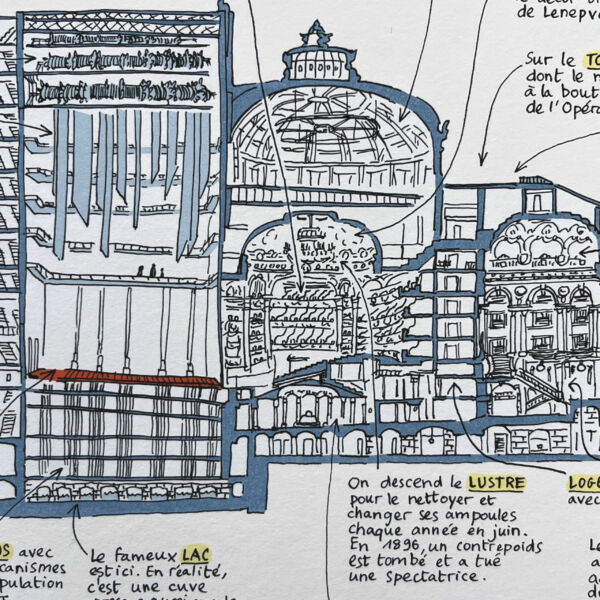 de Lenepv
Sur le TO
dont le m
à la bout
de l'Opéra
On descend le LUSTRE
pour le nettoyer et
changer ses ampoules
chaque année en juin.
En 1896, un contrepoids
est tombé et a tué
une spectatrice.
LOGE
avec
OS avec
canismes
pulation
Le fameux LAC
est ici. En réalité,
c'est une cuve
Le
a